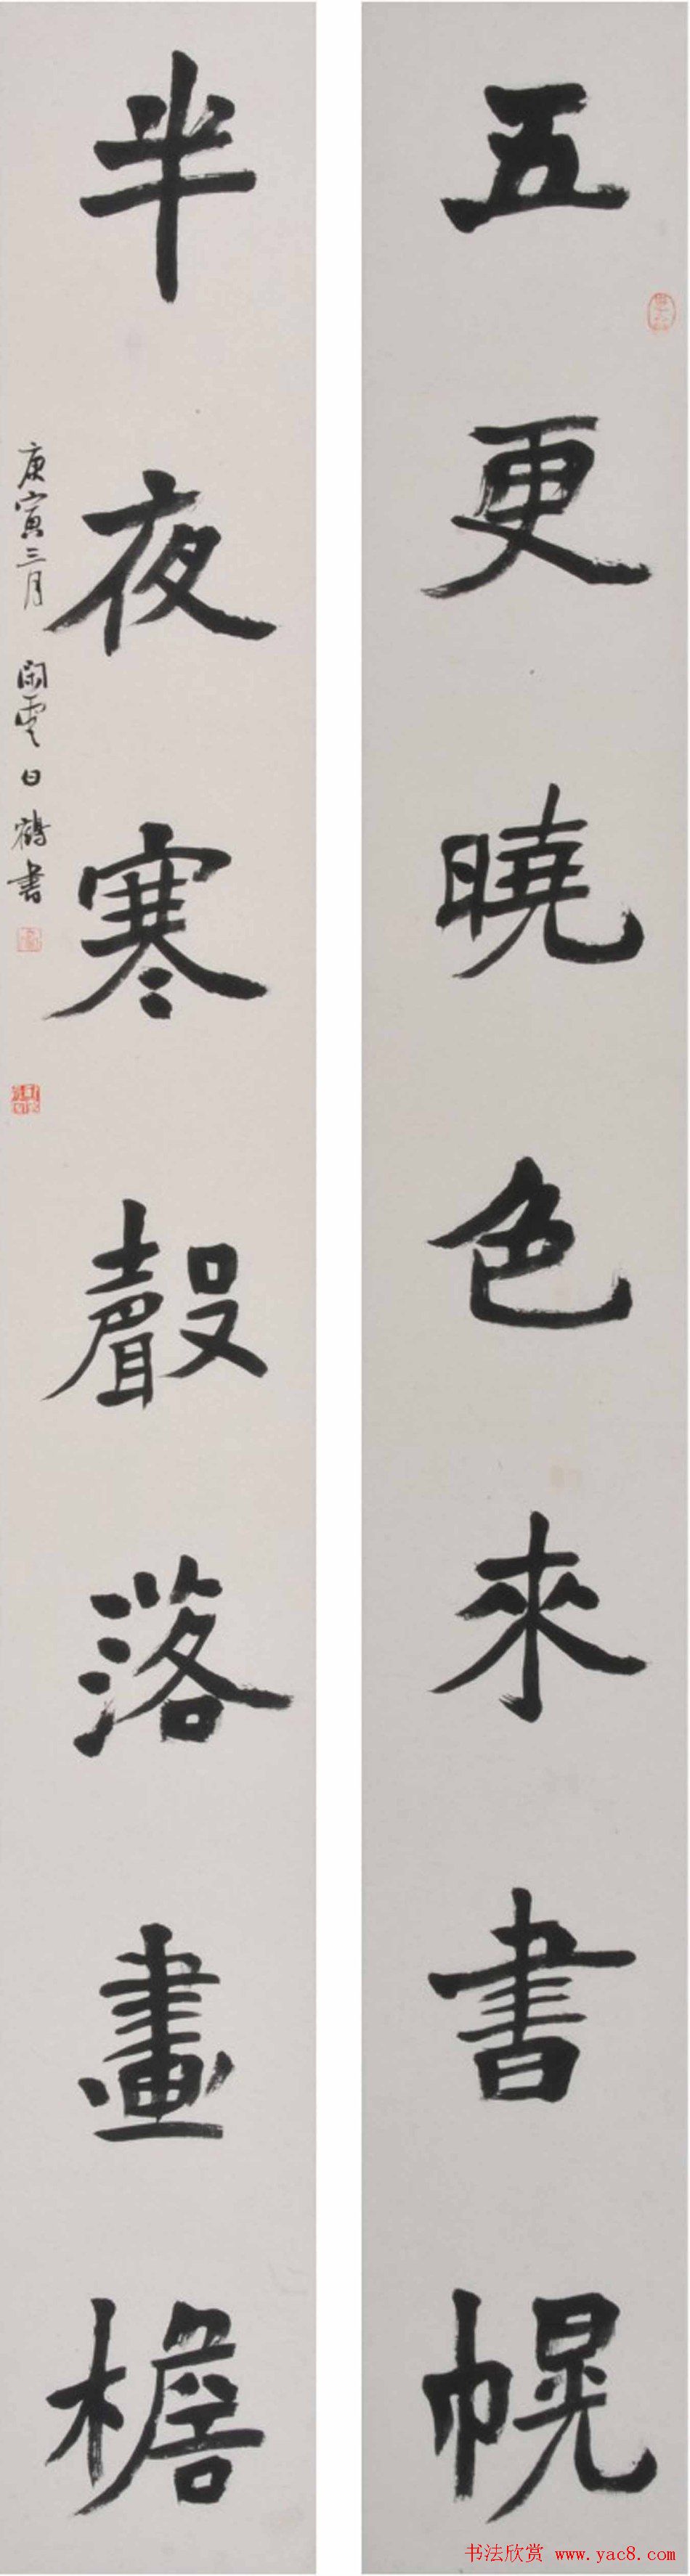 五更曉色來書幌
半夜寒聲落畫檐
庚寅三月 閑雲白鶴書
书法欣赏 www.yac8.com